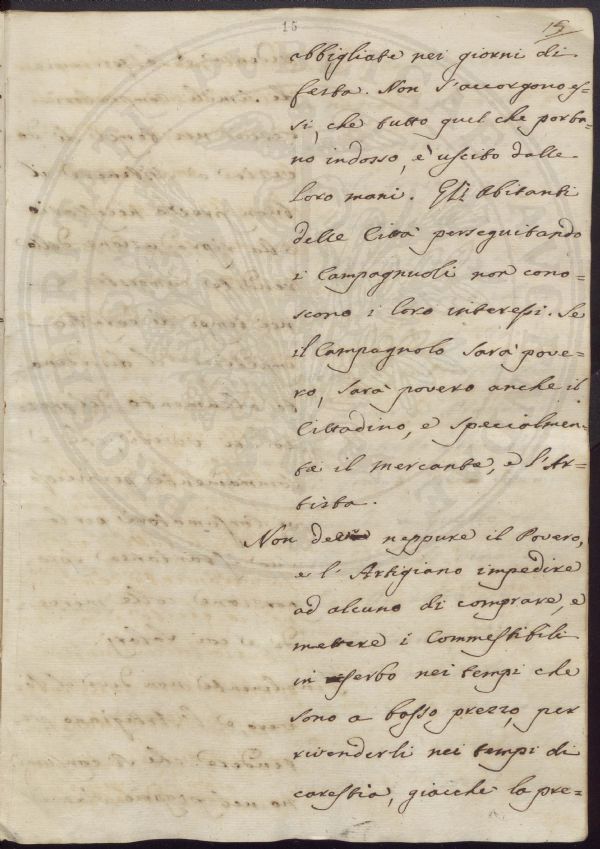 16
15
abbigliate nei giorni di
festa. Non s'accorgono es=
si, che tutto quel che porta=
no indosso, è uscito dalle
loro mani. Gli Abitanti
delle Città perseguitando
i Campagnuoli non cono=
scono i loro interessi. Se
il Campagnolo sarà pove=
ro, sarà povero anche il
Cittadino, e specialmen=
te il mercante, e l'Ar=
tista.
Non neppure il Povero,
e l'Artigiano impedire
ad alcuno di comprare, e
mettere i Commestibili
in serbo nei tempi che
sono a basso prezzo, per
rivenderli nei tempi di
carestia, giacchè la pre=